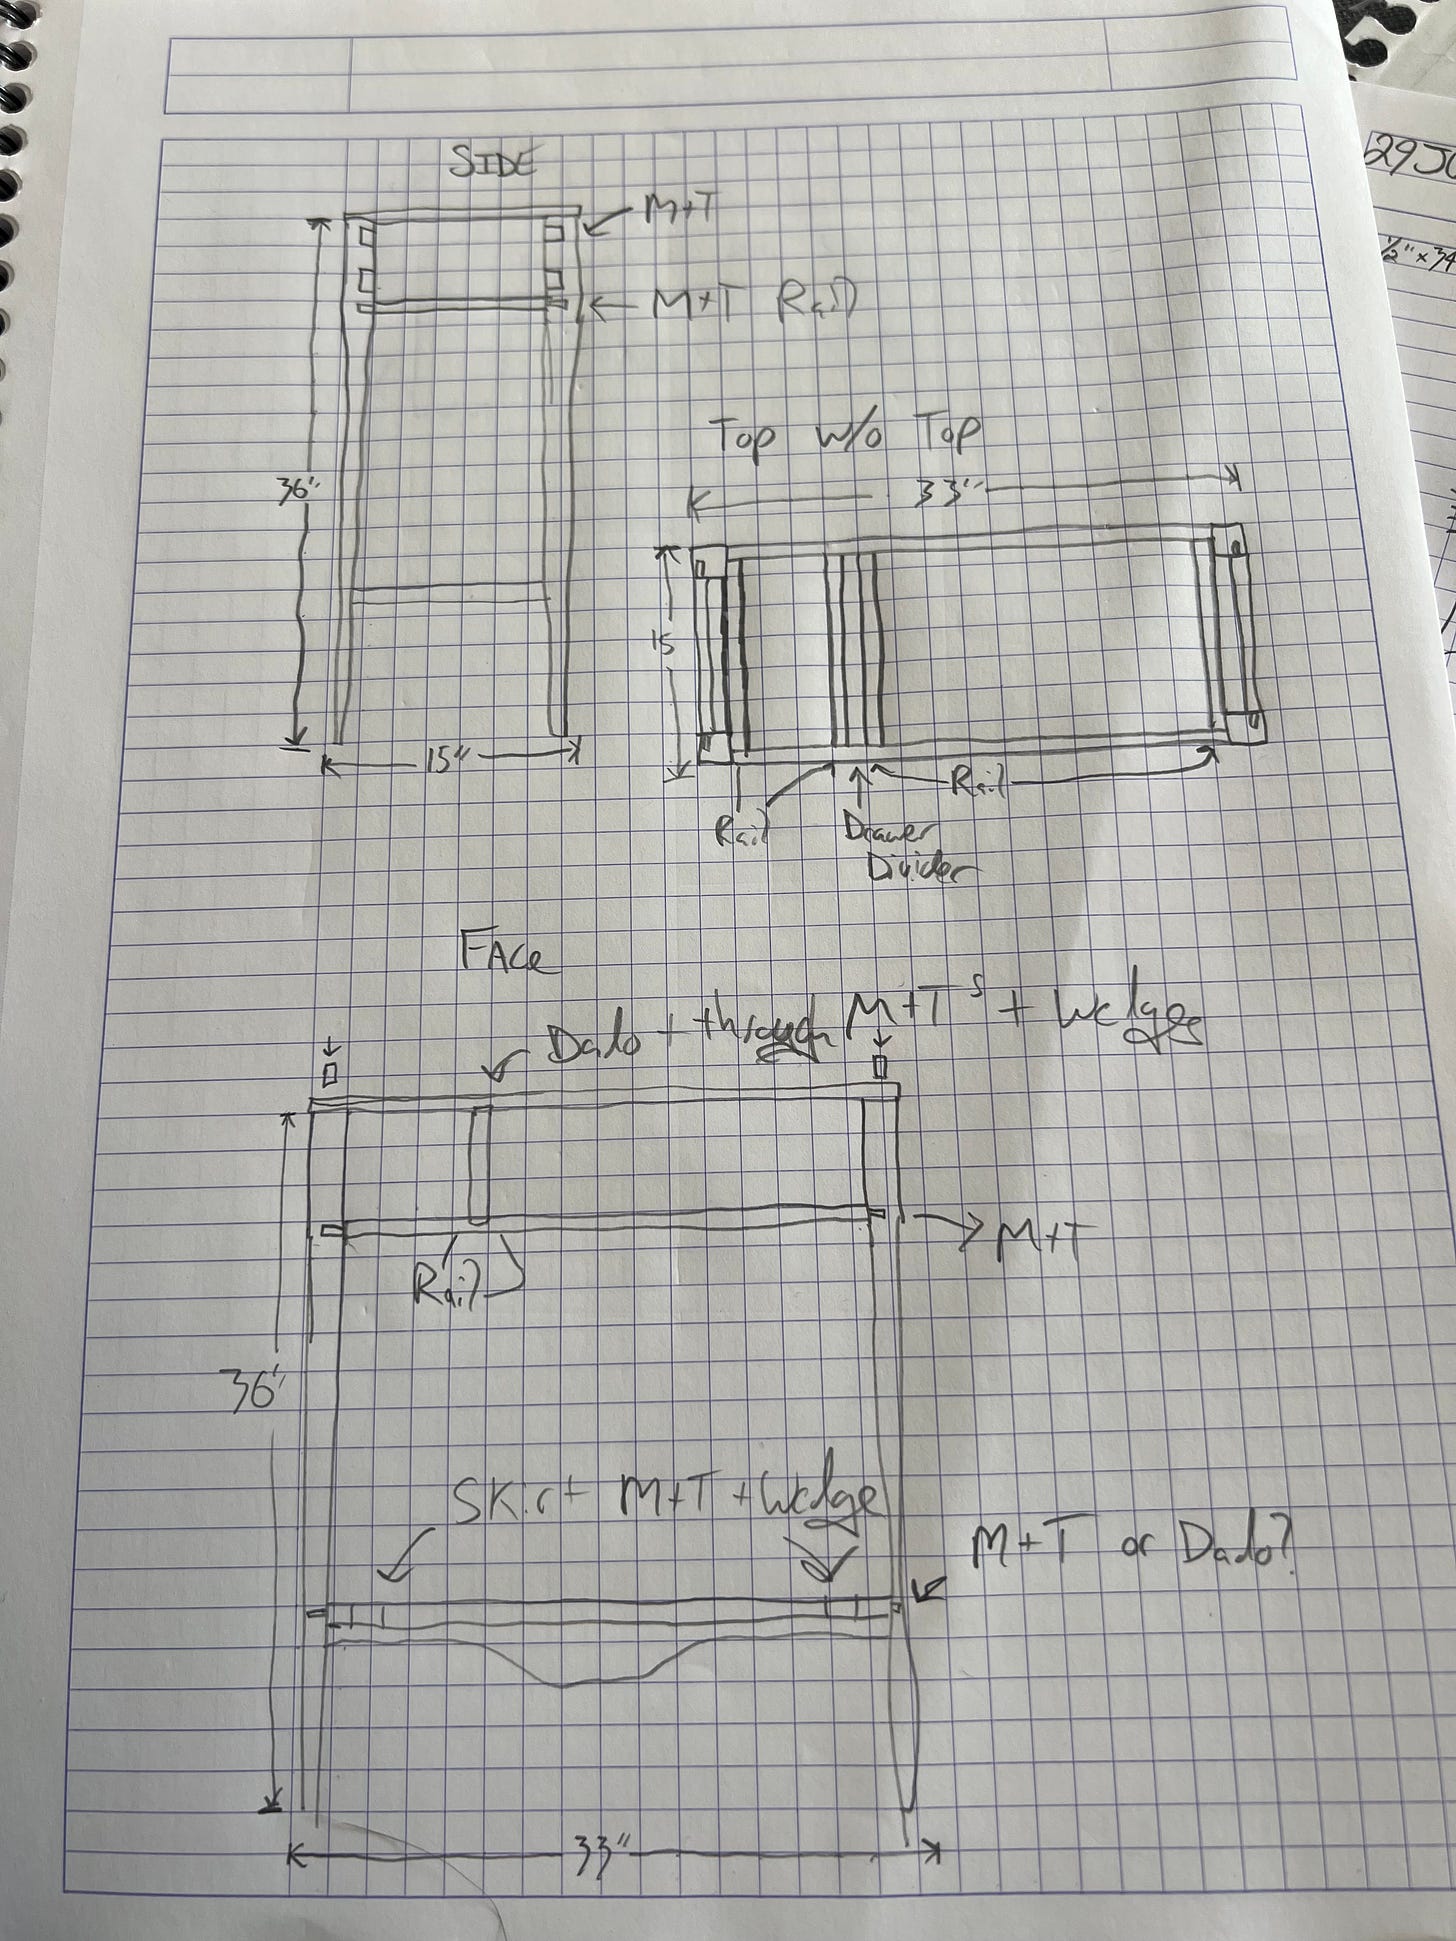 SIDE
M+T
M+T Rail
36"
15"
Top w/o Top
33"
15
Rail
Drawer
Divider
Rail
FACE
Dado + through M+T s + Wedge
Rail
M+T
36"
Skirt M+T + Wedge
M+T or Dado?
33"
29
1/2" x 34